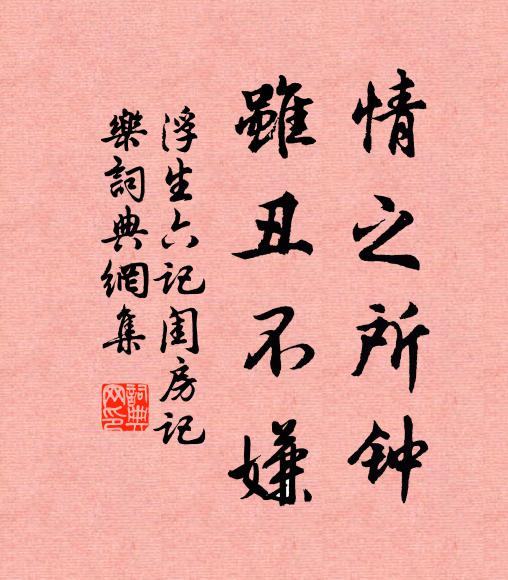 情之所钟
雖丑不嫌
浮生六记闺房记
樂詞典網集
詞典
网印